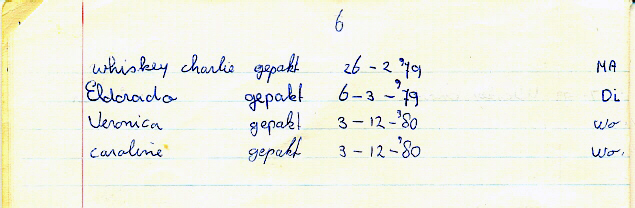 6
whiskey charlie gepakt 26 - 2 '79 MA
Eldorado gepakt 6 - 3 - '79 Di
Veronica gepakt 3 - 12 - '80 Wo
caroline gepakt 3 - 12 - '80 Wo.